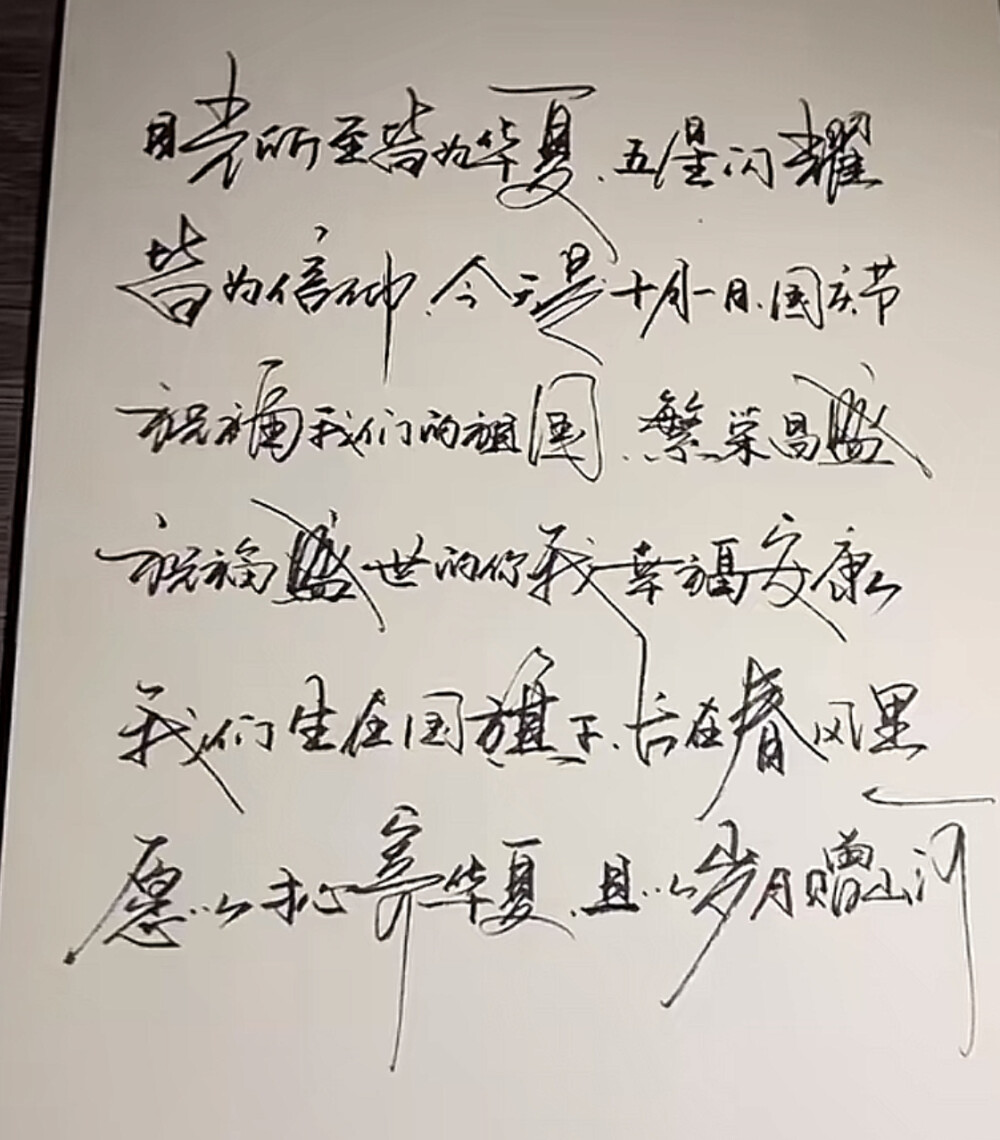 目光所至皆为华夏、五星闪耀
皆为信仰、今天是十月一日、国庆节
祝福我们的祖国、繁荣昌盛
祝福盛世的你我幸福安康
我们生在国旗下、长在春风里
愿以赤心寄华夏、且以岁月赠山河